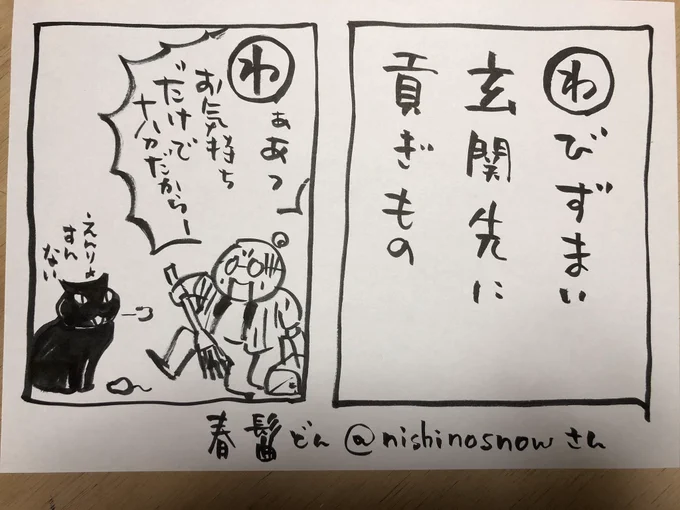 わびずまい
玄関先に
貢ぎもの
わぁあっ
お気持ち
だけで
十分だからー
えんりょ
すんない
春髷どん @nishinosnowさん